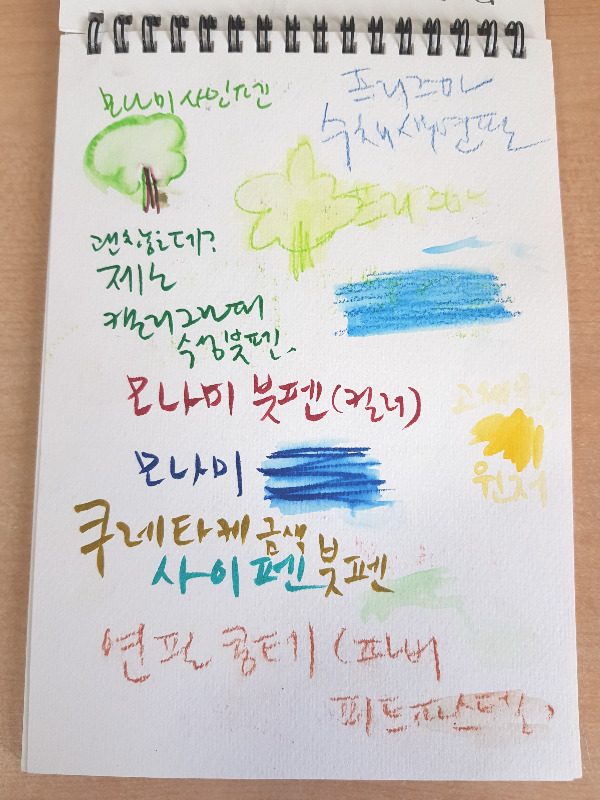 모나미 사인펜
프리즈마
수채색연필
프리즈마
괜찮은데?
제노
캘리그라피
수성붓펜.
모나미 붓펜(컬러)
모나미
고체물감
윈저
쿠레타케 금색
사이펜 붓펜
연필 콩테기 (파버
피트파스텔)